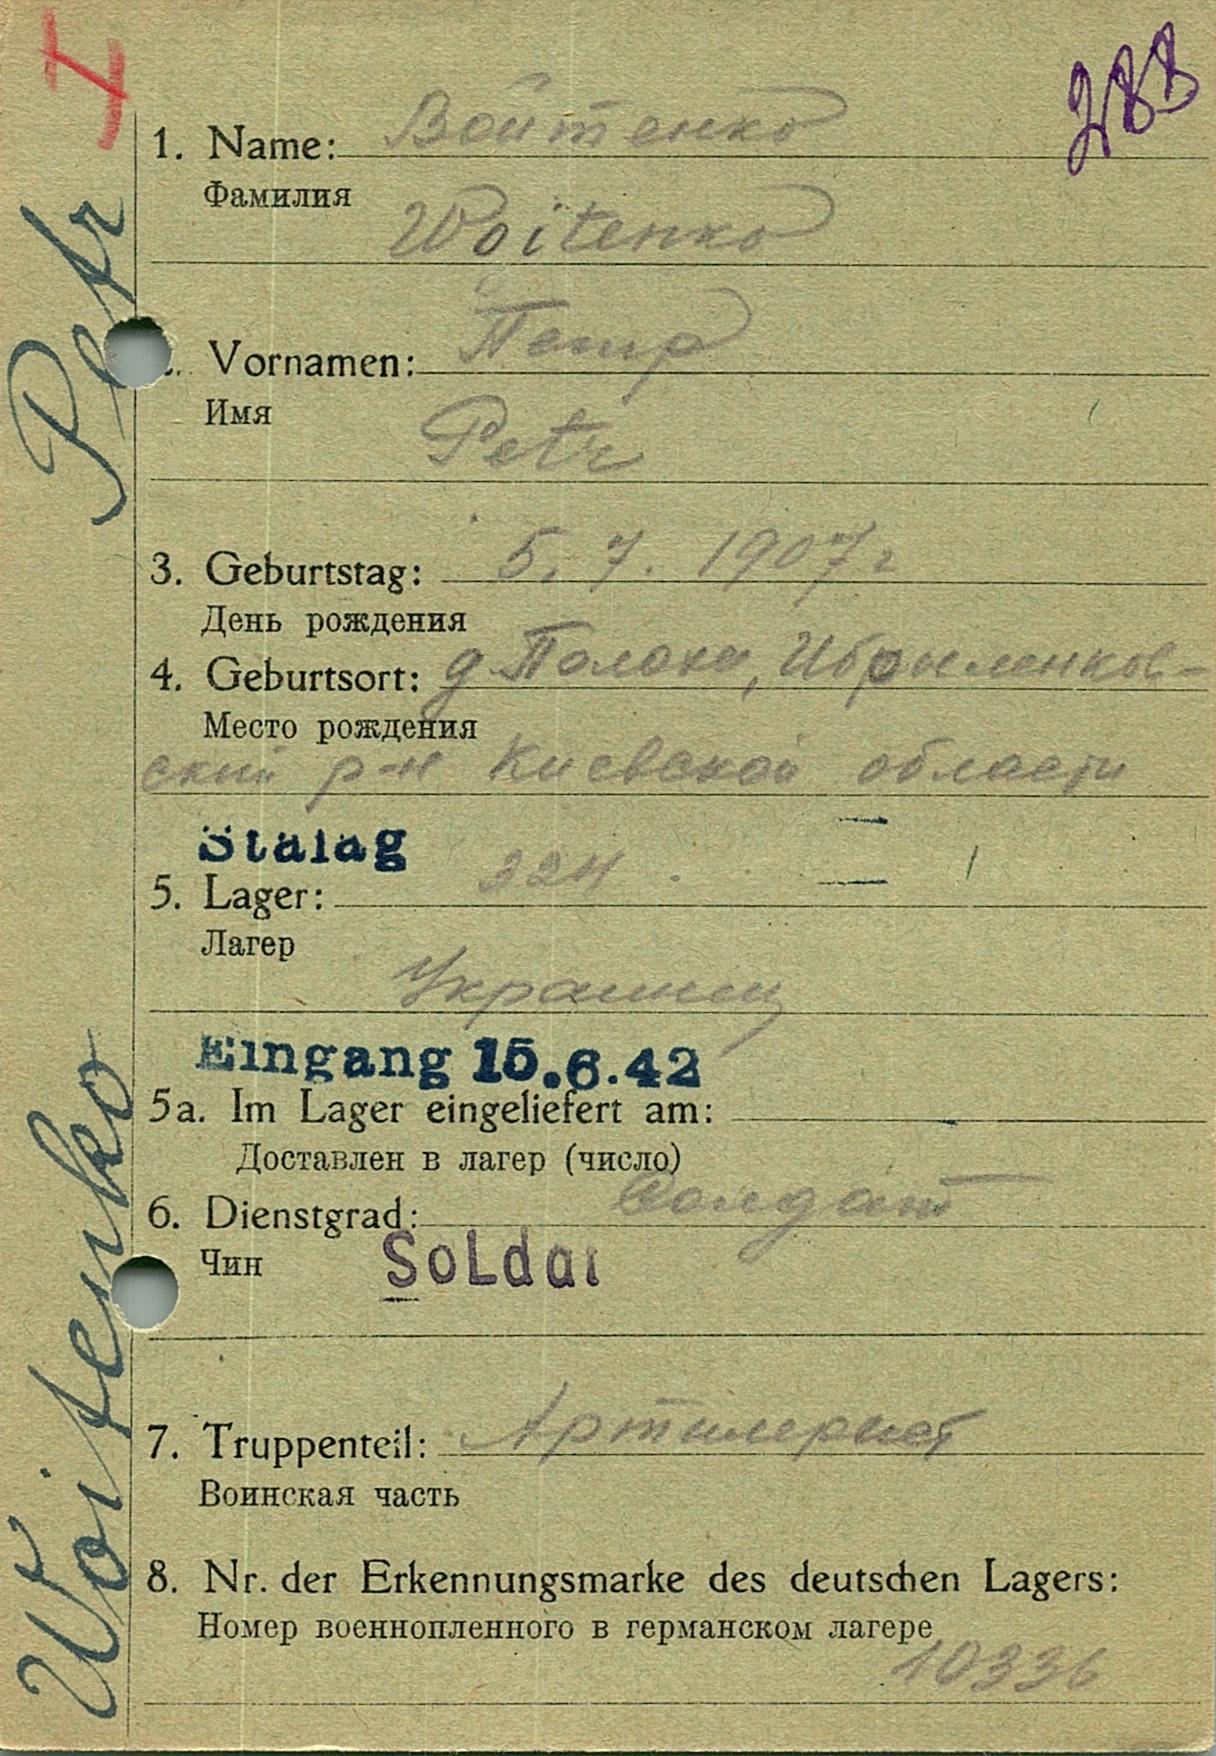 I
288
Войтенко
1. Name:
Фамилия
Woitenko
Петр
Vornamen:
Имя
Petr
3. Geburtstag: 5. 7. 1907 г
День рождения
4. Geburtsort: д. Полоки,
Место рождения
ский р-н Киевской области
Stalag
5. Lager: 324
Лагер
Украинец
Eingang 15.6.42
5a. Im Lager eingeliefert am:
Доставлен в лагер (число)
6. Dienstgrad: Солдат
Чин Soldat
7. Truppenteil: Артилерист
Воинская часть
8. Nr. der Erkennungsmarke des deutschen Lagers:
Номер военнопленного в германском лагере
10336
Woitenko Petr